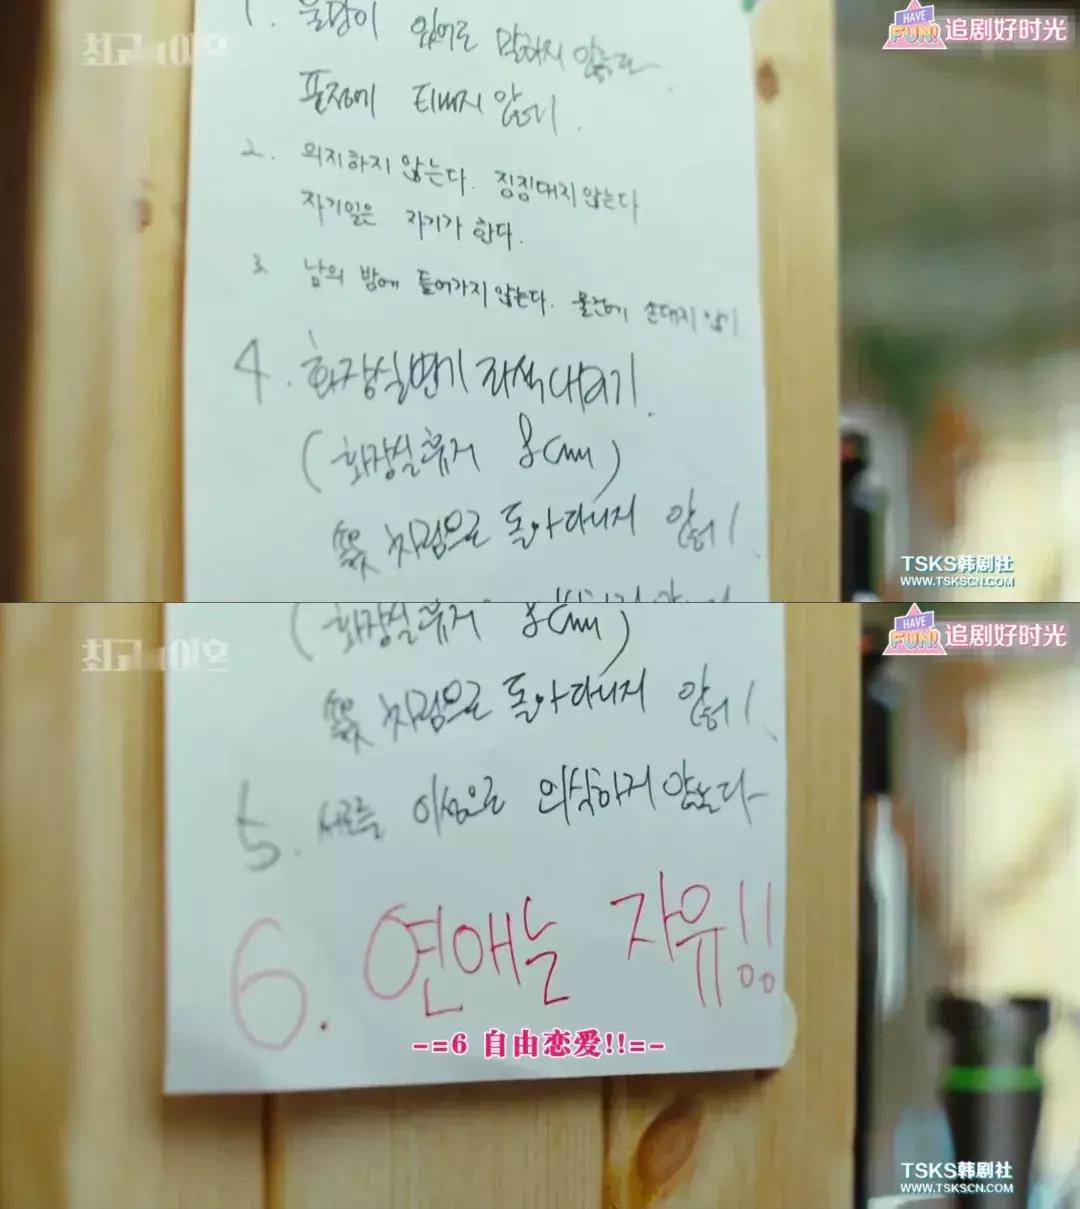 최고의 이혼
HAVE FUN! 追剧好时光
1. 불만이 있어도 말하지 않는다
표정에 티내지 않기.
2. 의지하지 않는다. 징징대지 않는다
자기일은 자기가 한다.
3. 남의 방에 들어가지 않는다. 물건에 손대지 않기
4. 화장실변기 좌석 내리기.
(화장실휴지 8cm)
차림으로 돌아다니지 않기!
TSKS韩剧社
WWW.TSKSCN.COM
최고의 이혼
HAVE FUN! 追剧好时光
(화장실휴지 8cm)
차림으로 돌아다니지 않기!
5. 서로를 이성으로 의식하지 않는다
6. 연애는 자유!!
-=6 自由恋爱!!=-
TSKS韩剧社
WWW.TSKSCN.COM